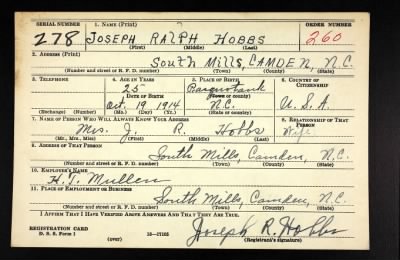 SERIAL NUMBER 1. NAME (Print) ORDER NUMBER
278 JOSEPH RALPH HOBBS 260
(First) (Middle) (Last)
2. ADDRESS (Print)
South Mills, CAMDEN, N.C.
(Number and street or R. F. D. number) (Town) (County) (State)
3. TELEPHONE 4. AGE IN YEARS 5. PLACE OF BIRTH 6. COUNTRY OF CITIZENSHIP
25 Pasquotank
DATE OF BIRTH (Town or county)
Oct. 19 1914 N.C. U.S.A.
(Exchange) (Number) (Mo.) (Day) (Yr.) (State or country)
7. NAME OF PERSON WHO WILL ALWAYS KNOW YOUR ADDRESS 8. RELATIONSHIP OF THAT PERSON
Mrs. J. R. Hobbs Wife
(Mr., Mrs., Miss) (First) (Middle) (Last)
9. ADDRESS OF THAT PERSON
South Mills, Camden, N.C.
(Number and street or R. F. D. number) (Town) (County) (State)
10. EMPLOYER'S NAME
H.T. Mullen
11. PLACE OF EMPLOYMENT OR BUSINESS
South Mills, Camden, N.C.
(Number and street or R. F. D. number) (Town) (County) (State)
I AFFIRM THAT I HAVE VERIFIED ABOVE ANSWERS AND THAT THEY ARE TRUE.
REGISTRATION CARD Joseph R. Hobbs
D. S. S. Form 1 (over) 16-17105 (Registrant's signature)